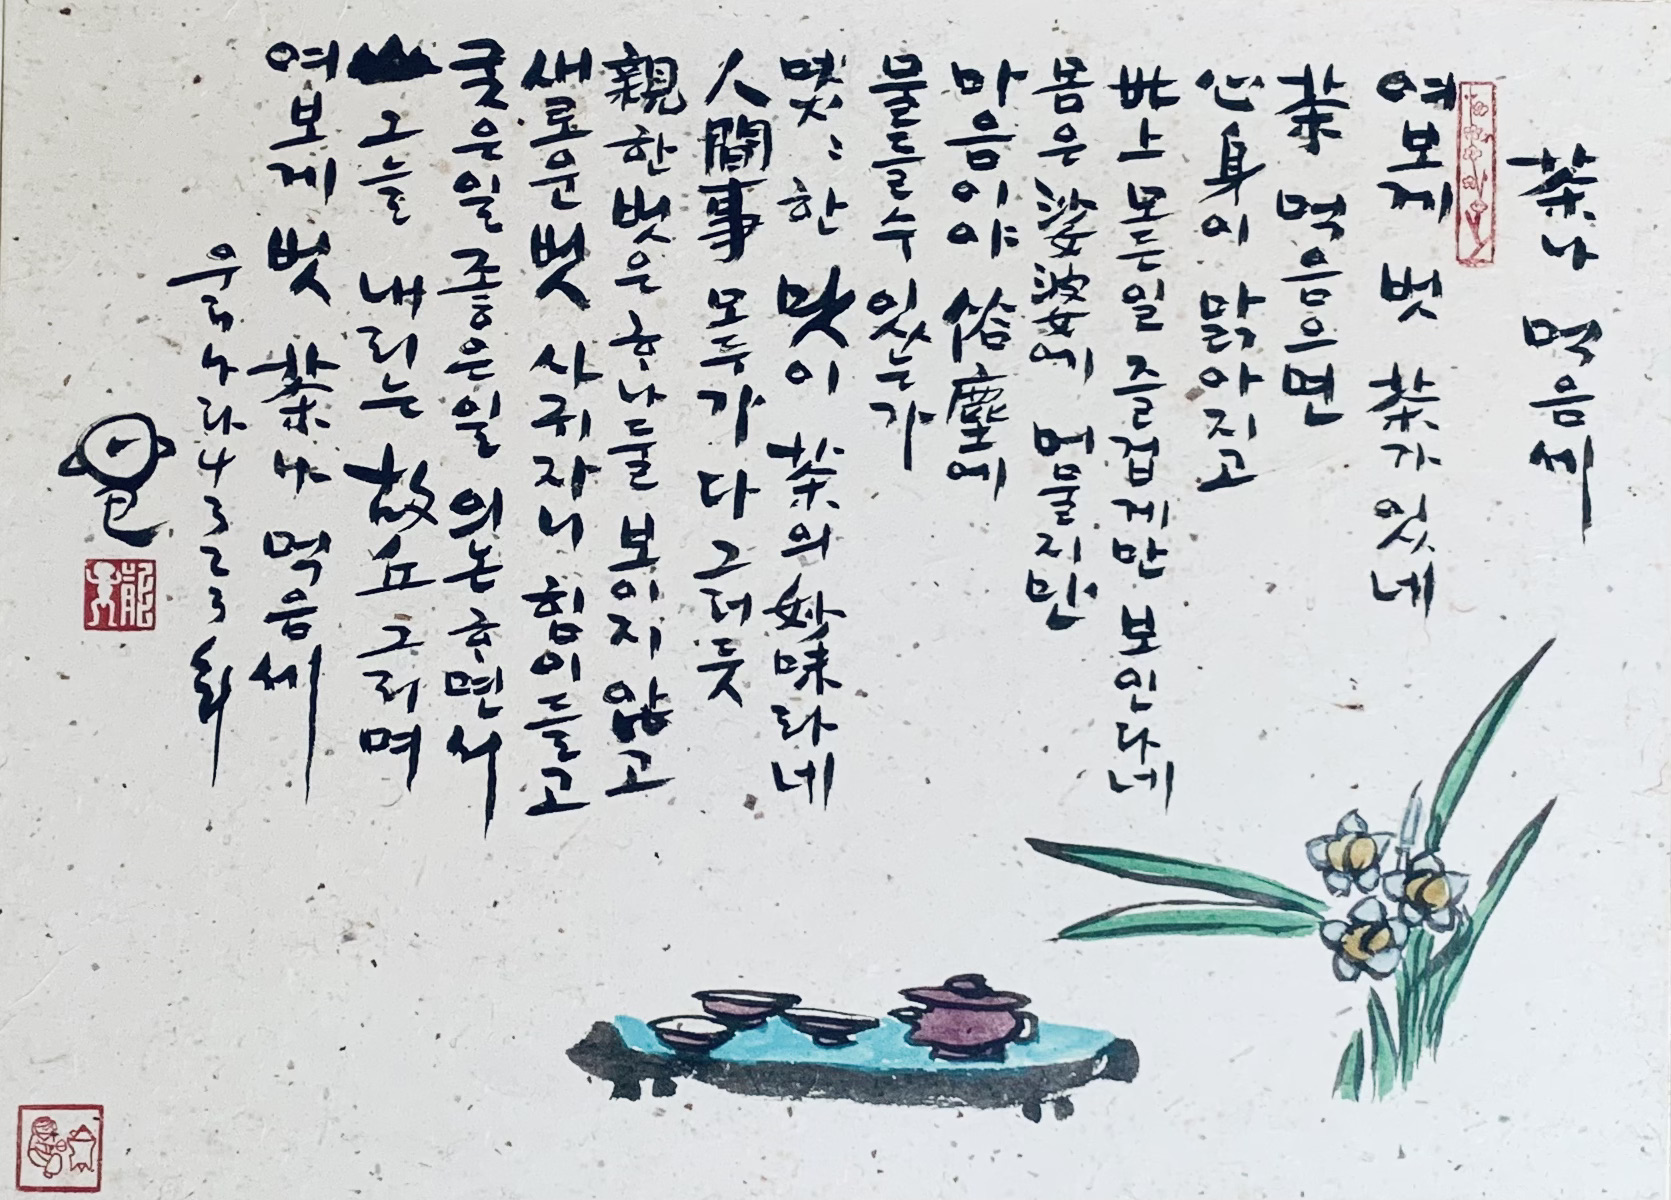 茶나 먹음세
여보게 벗 茶가 있네
茶 먹음으면
心身이 맑아지고
世上 모든일 즐겁게만 보인다네
몸은 娑婆에 머물지만
마음이야 俗塵에
물들수 있는가
맛〻한 맛이 茶의 妙味라네
人間事 모두가 다 그러듯
親한 벗은 하나둘 보이지 않고
새로운 벗 사귀자니 힘이들고
궂은일 좋은일 의논하면서
山그늘 내리는 故丘 그리며
여보게 벗 茶나 먹음세
우리나라4323해